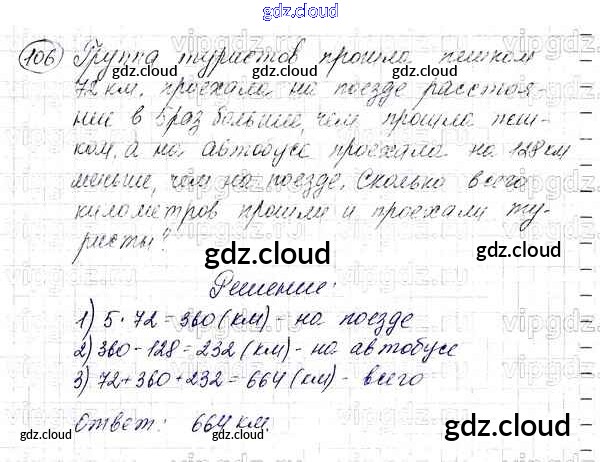 gdz.cloud
gdz.cloud
106 Группа туристов прошла пешком
72 км, проехала на поезде расстоя-
ние в 5 раз больше, чем прошла пеш-
gdz.cloud gdz.cloud
ком, а на автобусе проехала на 128 км
меньше, чем на поезде. Сколько всего
километров прошли и проехали ту-
ристы?
gdz.cloud gdz.cloud
Решение:
1) 5 · 72 = 360 (км) - на поезде
2) 360 - 128 = 232 (км) - на автобусе
3) 72 + 360 + 232 = 664 (км) - всего
gdz.cloud gdz.cloud
Ответ: 664 км.
gdz.cloud gdz.cloud
gdz.cloud